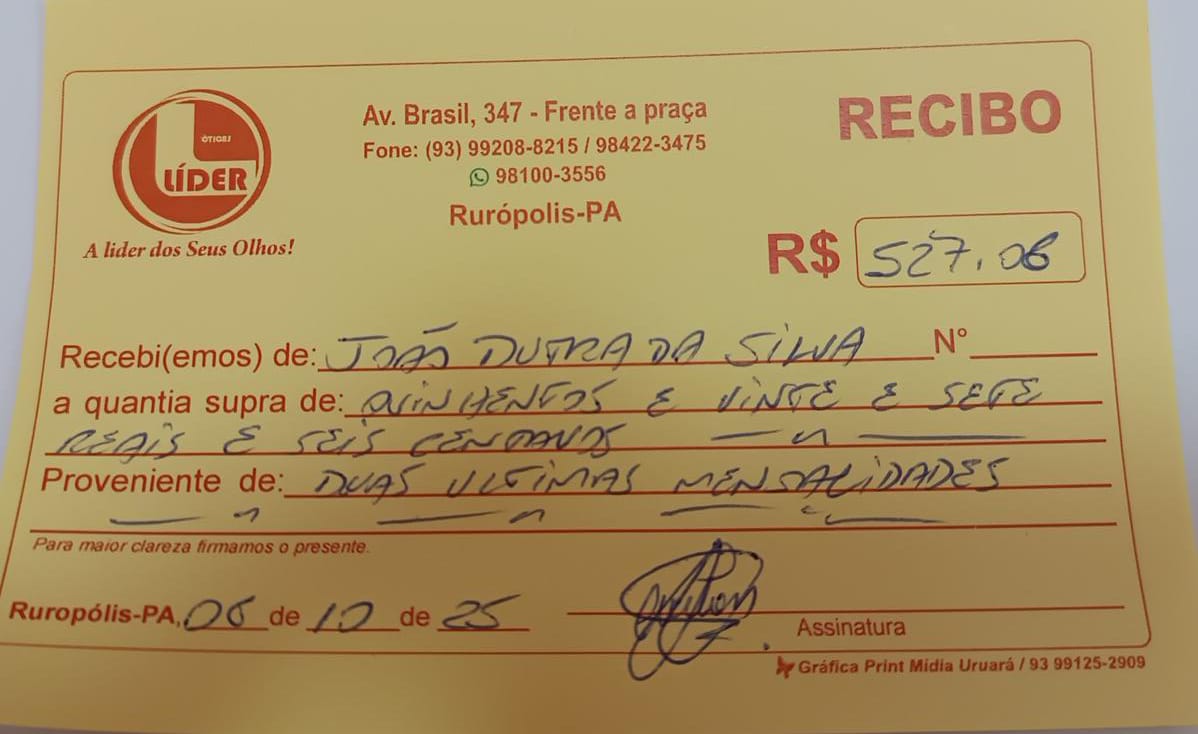 ÓTICAS
LÍDER
A lider dos Seus Olhos!
Av. Brasil, 347 - Frente a praça
Fone: (93) 99208-8215 / 98422-3475
98100-3556
Rurópolis-PA
RECIBO
R$ 527.06
Recebi(emos) de: JOÃO DUTRA DA SILVA N°
a quantia supra de: QUINHENTOS E VINTE E SETE
REAIS E SEIS CENTAVOS
Proveniente de: DUAS ULTIMAS MENSALIDADES
Para maior clareza firmamos o presente.
Ruropólis-PA, 06 de 10 de 25
Assinatura
Gráfica Print Mídia Uruará / 93 99125-2909